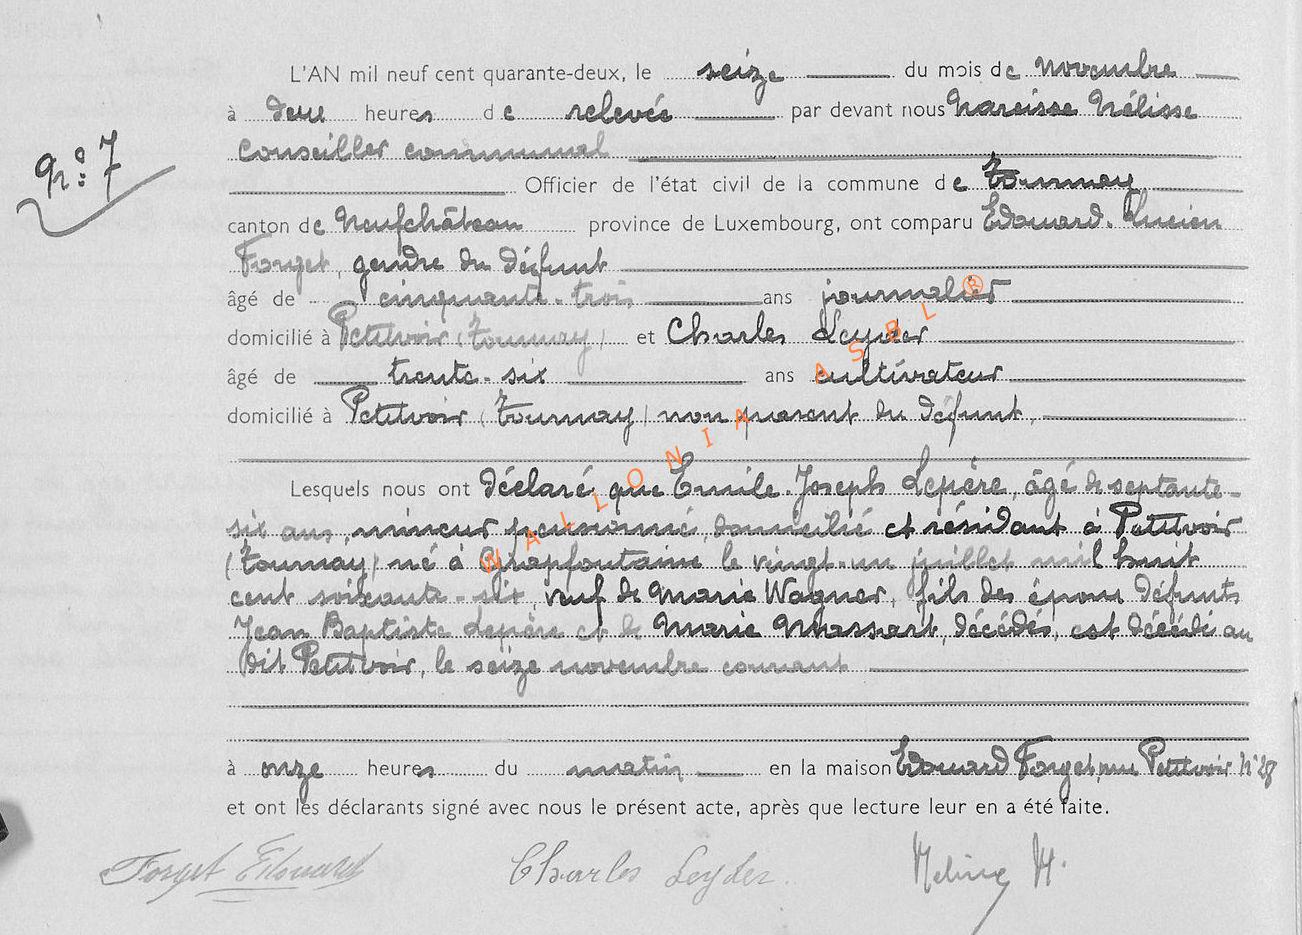 N.° 7
L'AN mil neuf cent quarante-deux, le seize du mois de novembre
à deux heures de relevée par devant nous Narcisse Mélisse
Conseiller communal
Officier de l'état civil de la commune de Tournay
canton de Neufchâteau province de Luxembourg, ont comparu Edouard. Lucien
Forget, gendre du défunt
âgé de cinquante-trois ans journalier
domicilié à Petitvoir (Tournay) et Charles Leyder
âgé de trente-six ans cultivateur
domicilié à Petitvoir (Tournay) non parent du défunt,
Lesquels nous ont déclaré que Emile Joseph Lepère, âgé de septante-
six ans, mineur pensionné, domicilié et résidant à Petitvoir
(Tournay) né à Grapfontaine le vingt-un juillet mil huit
cent soixante-six, veuf de Marie Wagner, fils des époux défunts
Jean Baptiste Lepère et de Marie Massart, décédés, est décédé au
dit Petitvoir, le seize novembre courant
à onze heures du matin en la maison Edouard Forget, rue Petitvoir N°28
et ont les déclarants signé avec nous le présent acte, après que lecture leur en a été faite.
Forget Edouard Charles Leyder
WALLONIA ASBL ®